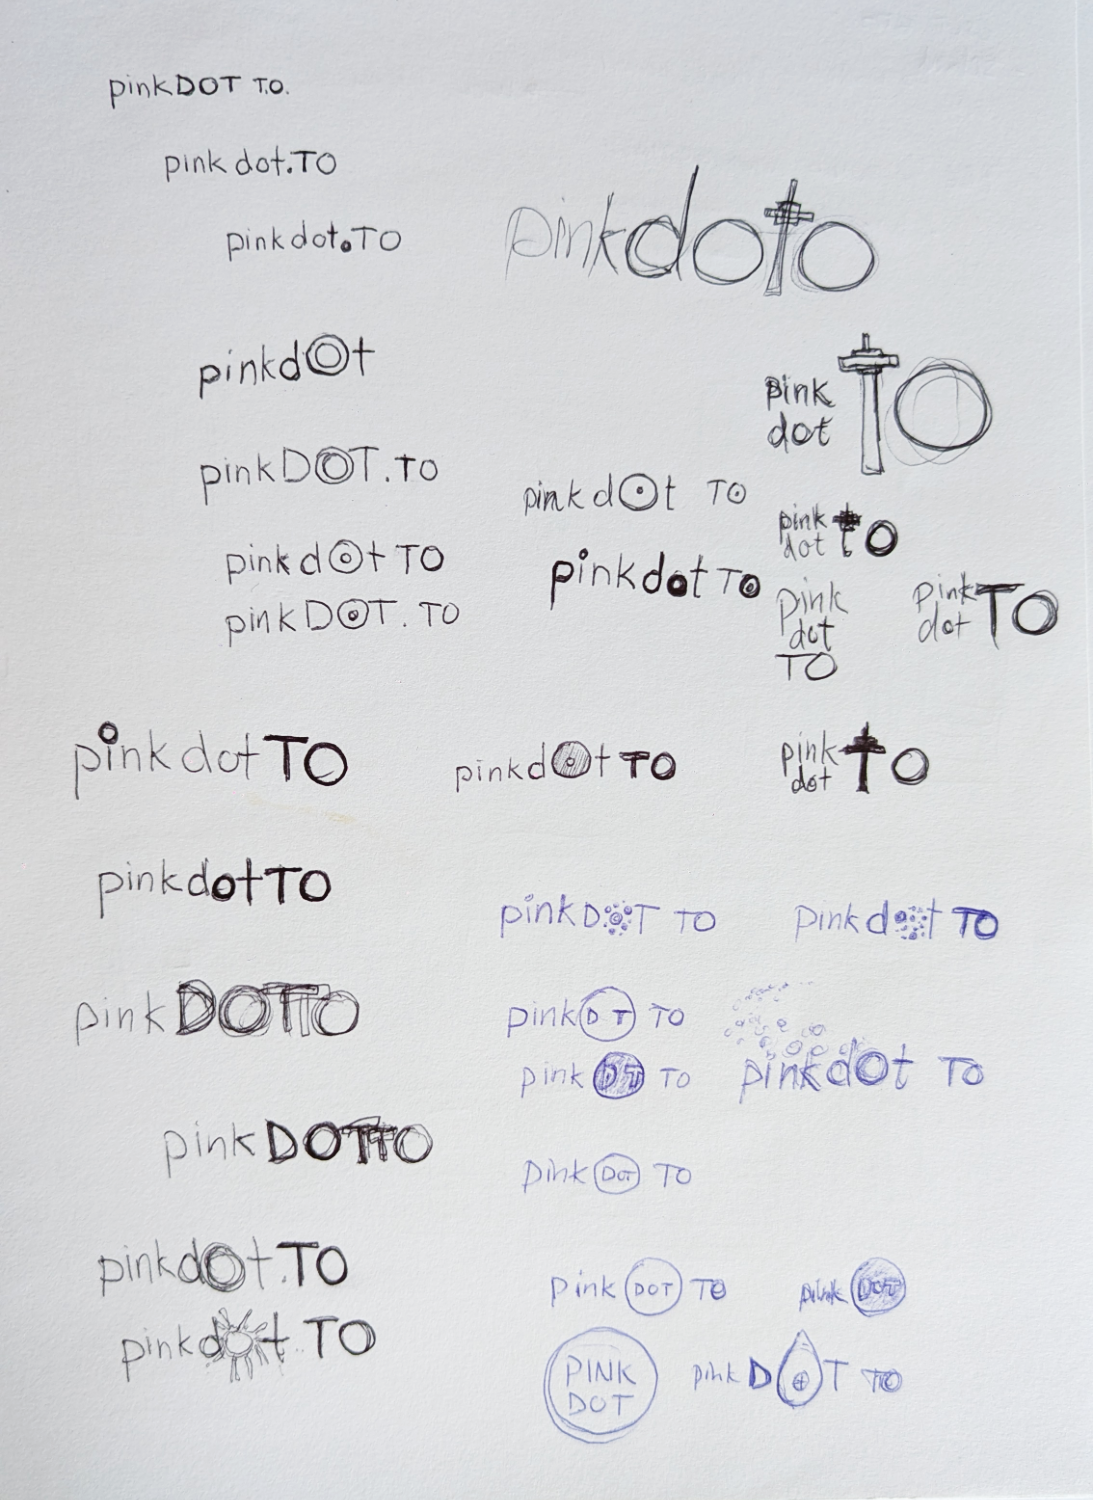 pinkDOT T.O.
pink dot.TO
pinkdot.TO
pinkdoto
pinkdOt
pink
dot TO
pinkDOT.TO
pinkdOt TO
pink
dot to
pinkdOt TO
pinkdot TO
pinkDOT. TO
pink
dot
TO
pink
dot TO
pinkdot TO
pinkdOt TO
pink
dot TO
pinkdotTO
pinkDOT TO
pinkdot TO
pinkDOTTO
pink DT TO
pink DT TO
pinkdot TO
pinkDOTTO
pink DOT TO
pinkdOt.TO
pink DOT TO
pink DOT
pinkdot. TO
PINK
DOT
pink DOT TO